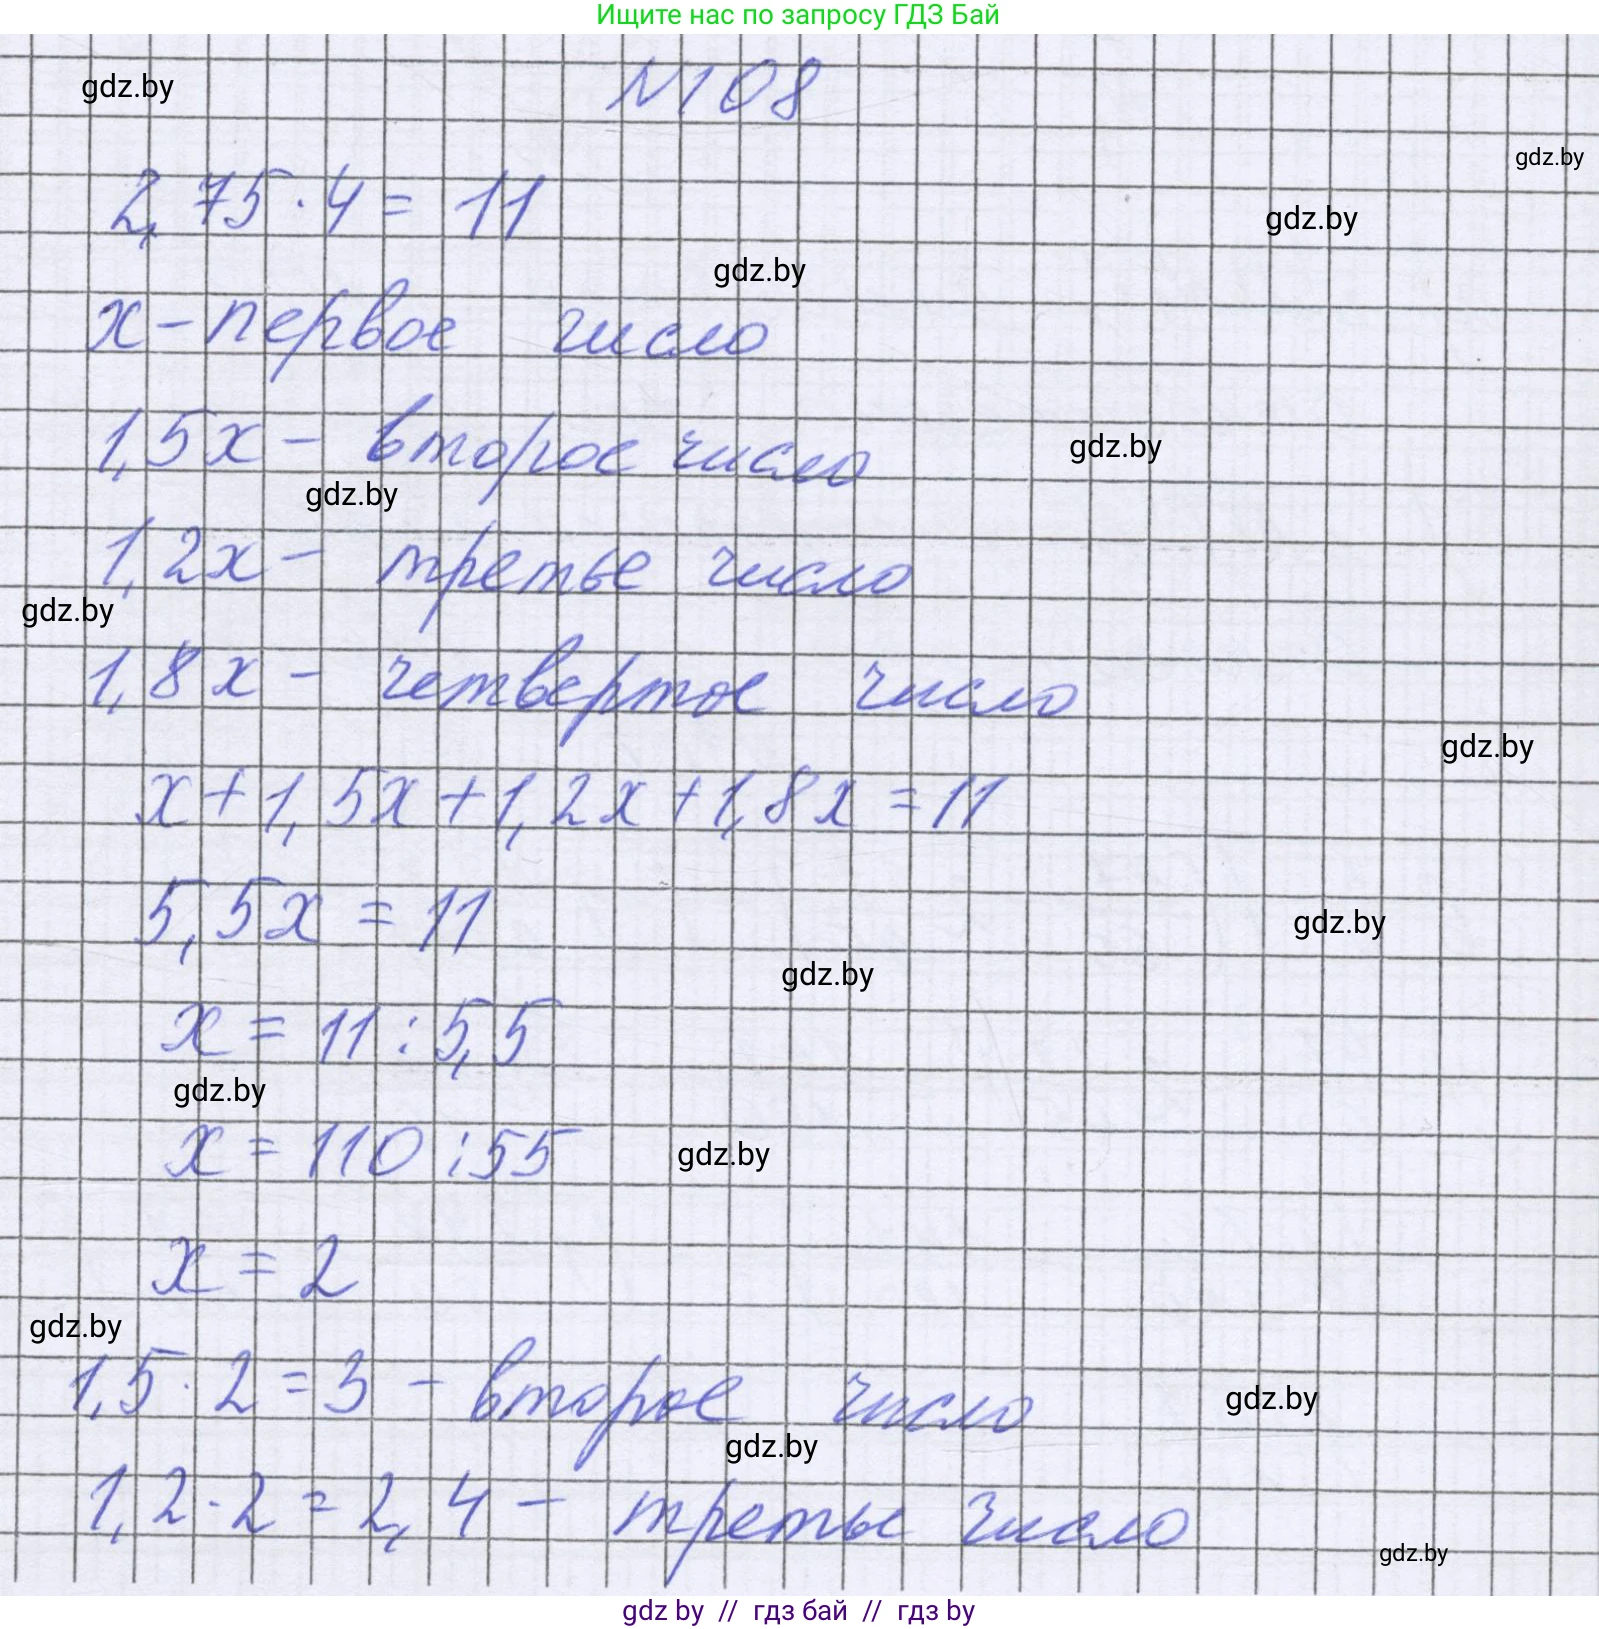 Ищите нас по запросу ГДЗ Бай
gdz.by
N108
gdz.by
2,75·4 = 11
gdz.by
gdz.by
x – первое число
1,5x – второе число
gdz.by
gdz.by
1,2x – третье число
gdz.by
1,8x – четвертое число
gdz.by
x + 1,5x + 1,2x + 1,8x = 11
5,5x = 11
gdz.by
gdz.by
x = 11 : 5,5
gdz.by
x = 110 : 55
gdz.by
x = 2
gdz.by
1,5 · 2 = 3 – второе число
gdz.by
gdz.by
1,2 · 2 = 2,4 – третье число
gdz.by
gdz by // гдз бай // гдз by